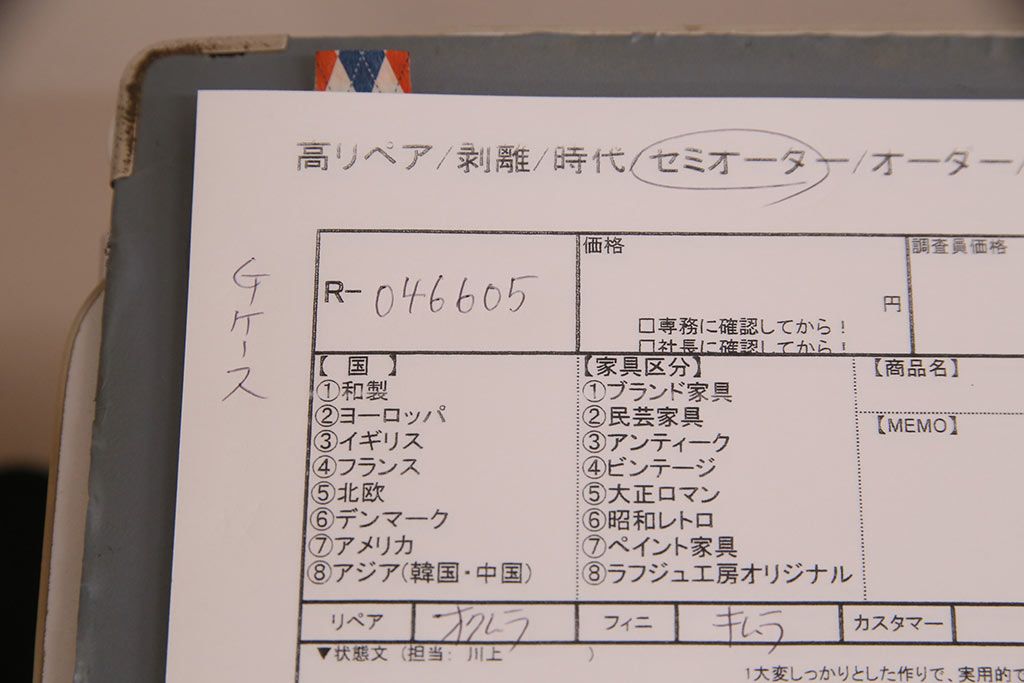 高リペア/剥離/時代/セミオーター/オーター/
Gケース
R-046605
価格
円
□専務に確認してから!
□社長に確認してから!
調査員価格
【 国 】
①和製
②ヨーロッパ
③イギリス
④フランス
⑤北欧
⑥デンマーク
⑦アメリカ
⑧アジア(韓国・中国)
【家具区分】
①ブランド家具
②民芸家具
③アンティーク
④ビンテージ
⑤大正ロマン
⑥昭和レトロ
⑦ペイント家具
⑧ラフジュ工房オリジナル
【商品名】
【MEMO】
リペア オクムラ フィニ キムラ カスタマー
▼状態文 (担当: 川上 )
1大変しっかりとした作りで、実用的で